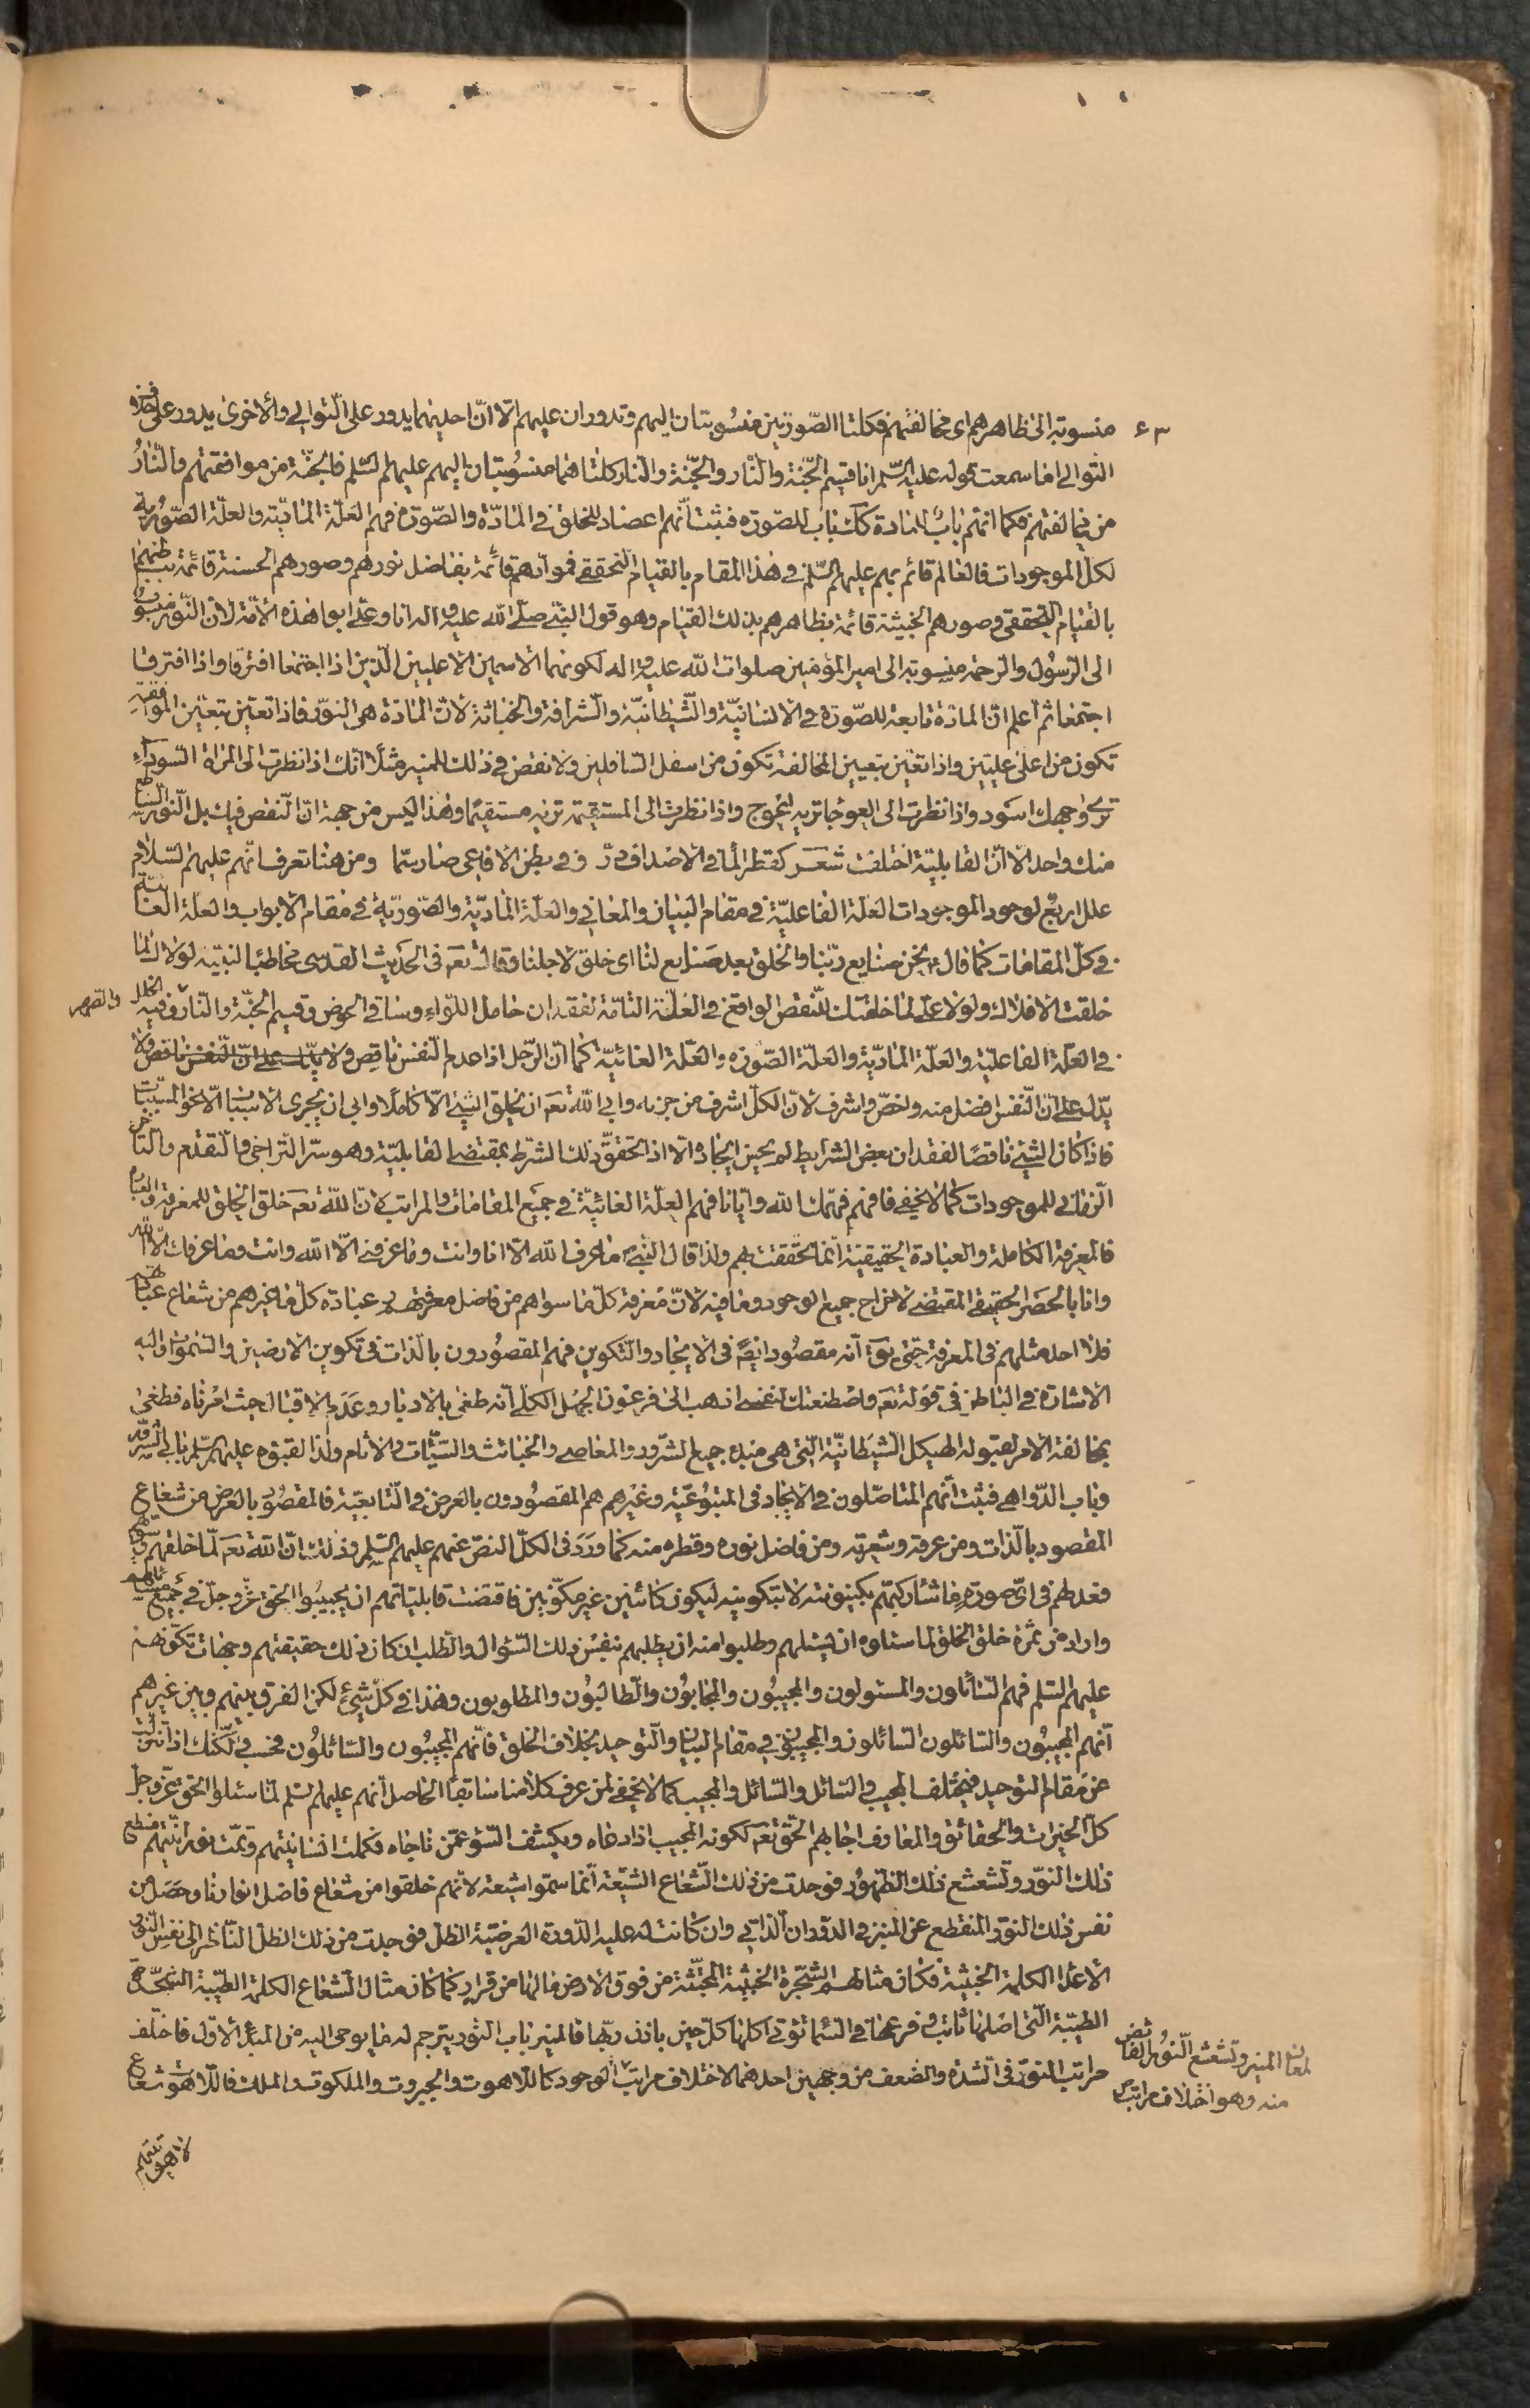 ٤٣
منسوبة الى ظاهرهم اى مخالفتهم فكلتا الصّورتين منسُوبتان اليهم وتدوران عليهم الّا انّ احديهما يدور على التّوالى والاخرى يدور على خلاف
التّوالى اما سمعت قوله عليه السّلم انا قسيم الجّنة والنّار والجّنة والنار كلتاهما منسُوبتان اليهم عليهم السّلم فالجنّة من موافقتهم والنّارُ
من مخالفتهم فكما انّهم بابٌ للمادة كك باب للصّورة فثبت انّهم اعضاد للخلق فى المادّة والصّورة فهم العلّة المادّيّة والعلّة الصّوريّة
لكلّ الموجودات فالعالم قائم بهم عليهم السّلم فى هذا المقام بالقيام التحققى فموادهم قائمة بفاضل نورهم وصورهم الحسنة قائمة بباطنهم
بالقيام التّحققى وصورهم الخبيثة قائمة بظاهرهم بذلك القيام وهو قول النبّى صلّى الله عليه واله انا وعلّى ابوا هذه الأمّة لانّ النّور منسُوب
الى الرّسُول والرحمة منسوبة الى امير المؤمنين صلوات الله عليه واله لكونهما الاسمين الاعليين الّذين اذا اجتمعا افترقا واذا افترقا
اجتمعا ثم اعلم انّ المادّة تابعة للصّورة فى الانسانيّة والشّيطانيّة والشّرافة والخباثة لانّ المادّة هى النوّر فاذا تعيّن بتعيّن الموافقة
تكون من اعلى عليّين واذا تعيّن بتعيين المخالفة تكون من اسفل السّافلين ولا نقض فى ذلك للمنير مثلًا انّك اذا نظرت الى المرآة السّوداء
ترى وجهك اسود واذا نظرت الى العوجا تريه اعوج واذا نظرت الى المستقيمة تريه مستقيمًا وهذا ليس من جهة انّ النّقص فيك بل النّور السّاطع
منك واحد الّا انّ القابليّة اختلفت شعر كقطر الما فى الاصداف درّ وفى بطن الافاعى صار سمّا ومن هنا تعرف انّهم عليهم السّلام
علل اربعٌ لوجود الموجودات العلّة الفاعليّة فى مقام البيان والمعانى والعلّة المادّيّة والصّوريّة فى مقام الابواب والعلّة الغائيّة
فى كلّ المقامات كما قال نحن صنايع ربّنا والخلق بعد صنايع لنا اى خلق لاجلنا وقال تعَ فى الحديث القدسى مخاطبًا لنبيّه لولاك لما
خلقت الافلاك ولولا علىّ لما خلقتك للنّقص الواقع فى العلّة التّامّة لفقدان حامل اللّواء وساقى الحوض وقسيم الجنّة والنّار وفيه الخلل والقصور
فى العلّة الفاعليّة والعلّة المادّيّة والعلّة الصّورة والعلّة الغائيّة كما انّ الرّجل اذا عدم النّفس ناقص ولا يدّل على انّ النّفس ناقص ولا
يدّل على انّ النّفس افضل منه واخصّ واشرف لانّ الكلّ اشرف من جزءه وابى الله تعَ ان يخلق الشّئ الّا كاملًا وابى ان يجرى الاسباب الّا نحو المسبّبات
فاذا كان الشّئ ناقصًا لفقدان بعض الشّرايط لم يحسن ايجاده الّا اذا تحقّق ذلك الشّرط بمقتضى القابليّة وهو سرّ التّراخى والتّقدم والتّأخر
الزّمانى للموجودات كما لا يخفى فافهم فهّمك الله وايّانا فهم العلّة الغائيّة فى جميع المقامات والمراتب لانّ الله تعَ خلق الخلق للمعرفة والعبادة
فالمعرفة الكاملة والعبادة الحقيقيّة انّما تحقّقت بهم ولذا قال النّبى ما عرف الله الّا انا وانت وما عرفنى الّا الله وانت وما عرفك الّا الله
وانا بالحصر الحقيقى المقتضى لاخراج جميع الوجود وما فيه لانّ معرفة كلّ ما سواهم من فاضل معرفتهم عبادة كلّ ما غيرهم من شعاع عبادتهم
فلا احد مثلهم فى المعرفة حتّى يقَ انّه مقصُود ايضًا فى الايجاد والتّكوين فهم المقصُودون بالذّات فى تكوين الارضين والسّموات واليه
الاشارة فى الباطن فى قوله تعَ واصطنعتك لنفسى اذهب الى فرعون الجهل الكلّى انّه طغى بالادبار وعدم الاقبال حيث امرناه فطغى
بمخالفة الامر لقبوله الهيكل الشّيطانيّة الّتى هى مبدء جميع الشّرور والمعاصى والخبائث والسّيّئات والاثام ولذا لقبوه عليهم السّلم بابى الشّرور
وباب الدّواهى فثبت انّهم المتاصّلون فى الايجاد فى المتبُوعيّة وغيرهم هم المقصُودون بالعرض فى التّابعيّة فالمقصُود بالعرض من شعاع
المقصود بالذّات ومن عرقه وشعرته ومن فاضل نوره وقطره منه كما وردَ فى الكلّ النصّ عنهم عليهم السّلم وذلك انّ الله تعَ لمّا خلقهم وسوّاهم
وعدلهم فى اىّ صورة ما شاء ركّبهم بكينونته لا بتكوينه ليكون كائنين غير مكوّنين فاقتضت قابليّاتهم ان يجيبُوا الحق عزّ وجلّ فى جميع مسائلهم
واراد من ثمرة خلق الخلق لما سئلوه ان يسئلهم وطلبوا منه ان يطلبهم بنفس ذلك السّؤال والطّلب اذ كان ذلك حقيقتهم وجهات تكوّنهم
عليهم السّلم فهم السّائلون والمسئولون والمجيبُون والمجابُون والطّالبُون والمطلوبون وهذا فى كلّ شئ لكن الفرق بينهم وبين غيرهم
انّهم المجيبُون والسّائلون السّائلون والمجيبُون فى مقام البيان والتّوحيد بخلاف الخلق فانّهم المجيبُون والسّائلُون فحسب لكنّك اذا تنزّلت
عن مقام التوحيد فيختلف المجيب والسّائل والسّائل والمجيب كما لا يخفى لمن عرف كلامنا سابقًا الحاصل انّهم عليهم السّلم لمّا سئلوا الحق عزّ وجلّ
كلّ الخيرات والحقائق والمعارف اجابهم الحّق تعَ لكونه المجيب اذا دعاه ويكشف السّوء عمّن ناجاه فكملت انسانيّتهم وتمّت نورانيّتهم فسطع
ذلك النوّر وتشعشع ذلك الظهُور فوجدت من ذلك الشّعاع الشّيعة انّما سمّوا شيعة لانّهم خلقوا من شعاع فاضل انوارنا وحصَل من
نفس ذلك النوّر المنقطع عن المنير فى الدّوران الذّاتى وان كانت له عليه الدّورة العرضيّة الظلّ فوجدت من ذلك الظلّ النّاظر الى نفس النّور
الاعدا الكلمة الخبيثة فكان مثالهم الشّجرة الخبيثة المجتثّة من فوق الارض مالها من قرار كما كان مثال الشّعاع الكلمة الطّيّبة الشّجرة
الطيّبة الّتى اصلها ثابت وفرعها فى السّماء تؤتى اكلها كلّ حين باذن ربّها فالمنير باب النّور يترجم له ما يوحى اليه من المبدء الاوّل فاختلف
مراتب النوّر فى الشّدة والضّعف من وجهين احدهما لاختلاف مراتب الوجود كاللّاهوت والجبروت والملكوت والملك فاللّاهوت شعاع
المنير وتشعشع النّور الفائض
منه وهو اختلاف مراتب